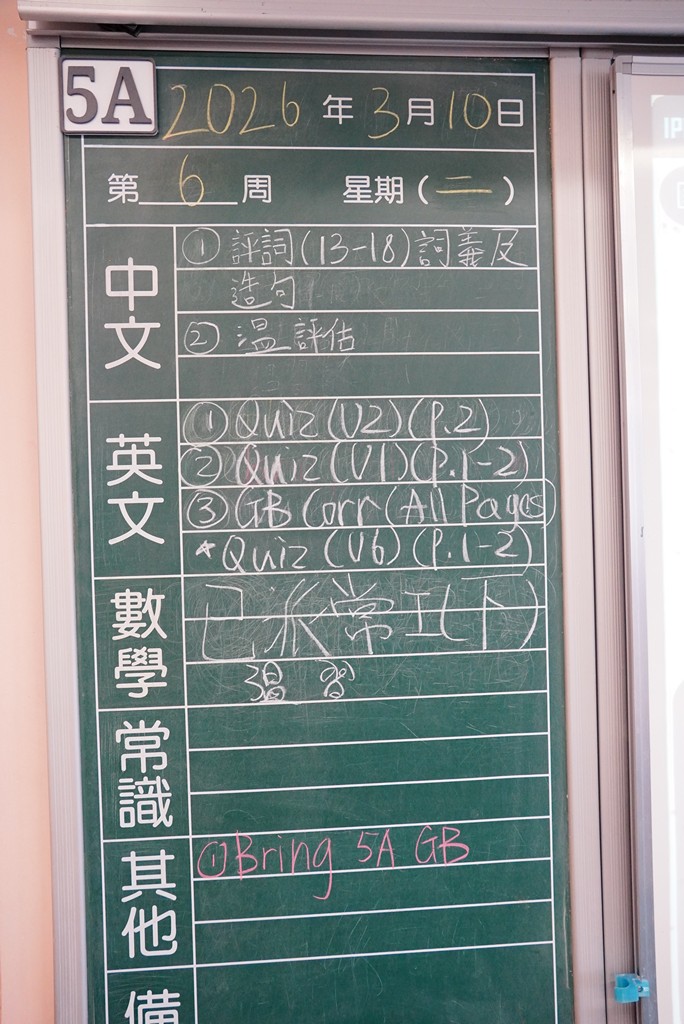 5A
2026年3月10日
第6周 星期(二)
中文
① 評詞(13-18)詞義及
造句
② 溫評估
英文
① Quiz (U2) (P.2)
② Quiz (U1) (P.1-2)
③ GB Corr (All Pages)
* Quiz (U6) (P.1-2)
數學
已派常工(下)
溫習
常識
其他
① Bring 5A GB
備
IP